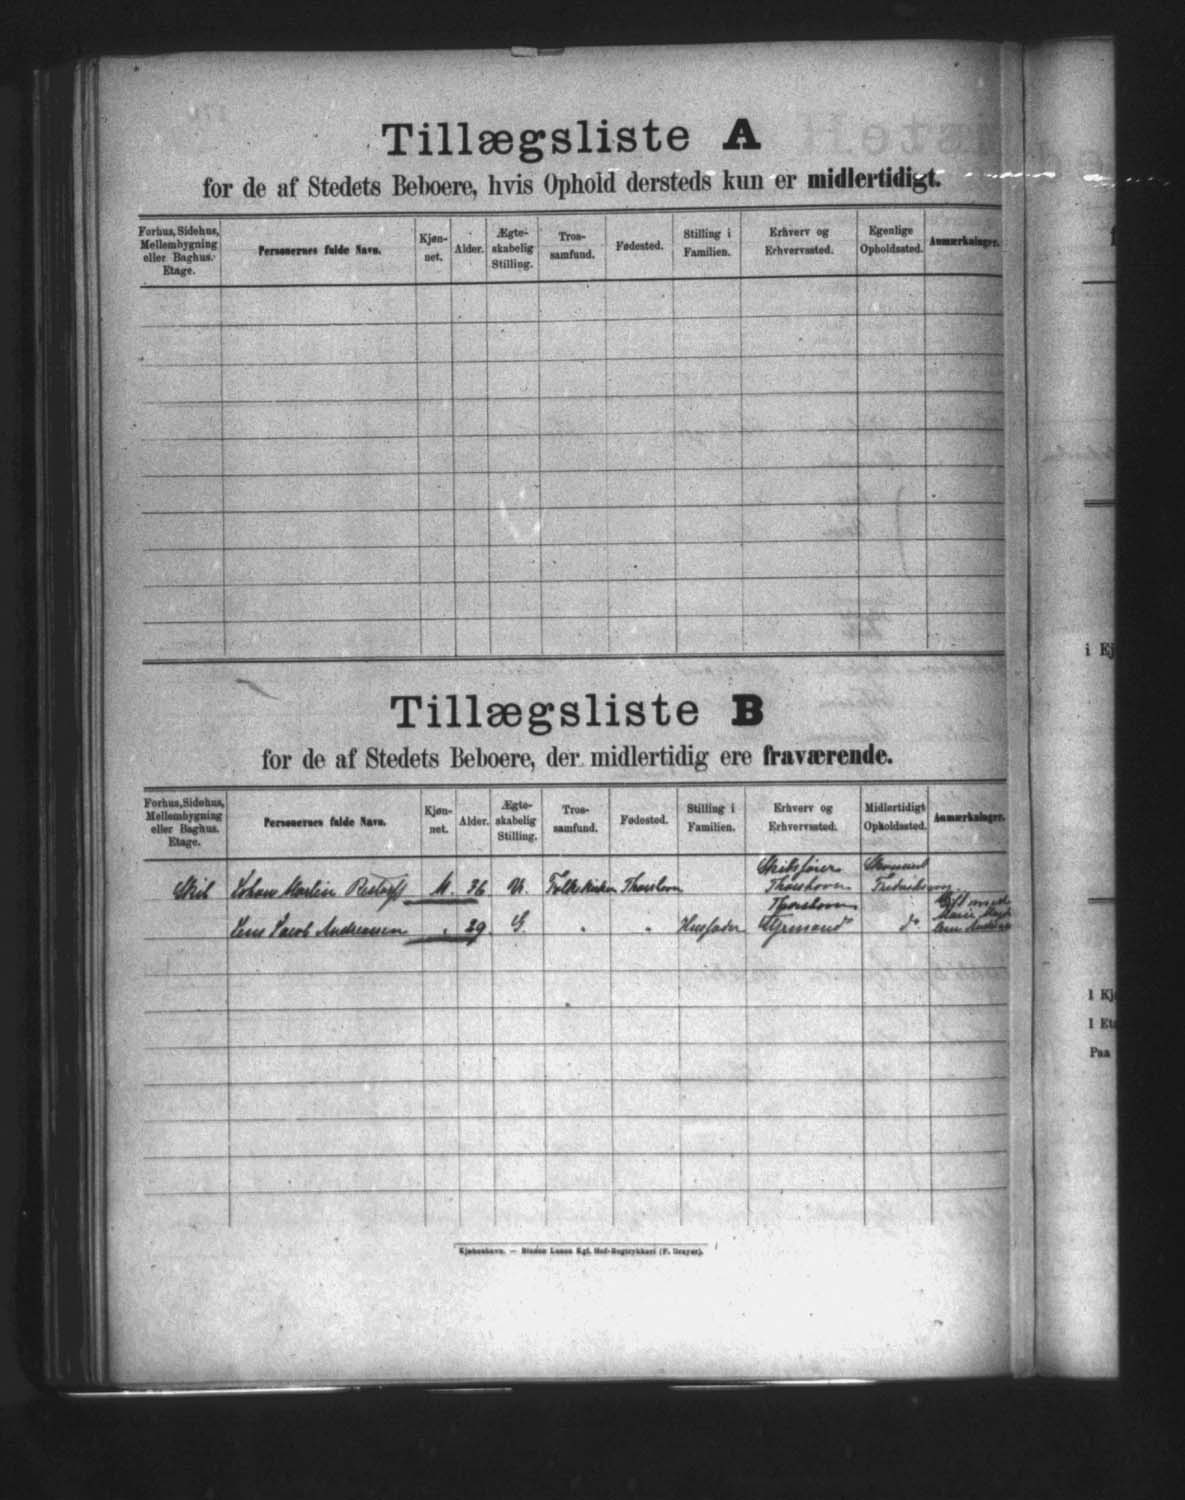 Tillægsliste A
for de af Stedets Beboere, hvis Ophold dersteds kun er midlertidigt.
Forhus, Sidehus, Mellembygning eller Baghus. Etage. Personernes fulde Navn. Kjøn-net. Alder. Ægte-skabelig Stilling. Tros-samfund. Fødested. Stilling i Familien. Erhverv og Erhvervssted. Egenlige Opholdssted. Anmærkninger.
Tillægsliste B
for de af Stedets Beboere, der midlertidig ere fraværende.
Forhus, Sidehus, Mellembygning eller Baghus. Etage. Personernes fulde Navn. Kjøn-net. Alder. Ægte-skabelig Stilling. Tros-samfund. Fødested. Stilling i Familien. Erhverv og Erhvervssted. Midlertidigt Opholdssted. Anmærkninger.
Skib Johan Martin Restorff M. 36 U. Folkekirken Thorshavn Skibsfører Thorshavn
Jens Jacob Andreasen " 29 G. " " Husfader Thorshavn Styrmand do Gift med Marie
Kjøbenhavn. — Bianco Lunos Kgl. Hof-Bogtrykkeri (F. Dreyer).
i Ej
1 Kj
1 Eta
Paa